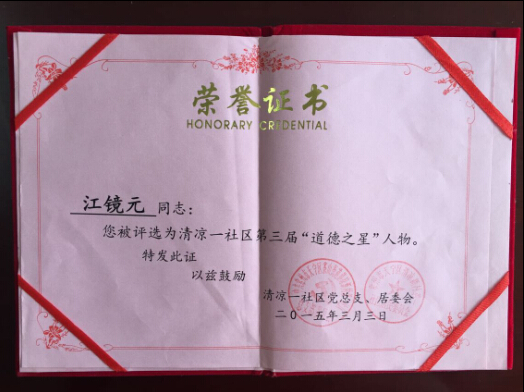 荣誉证书
HONORARY CREDENTIAL
江镜元 同志：
您被评选为清凉一社区第三届“道德之星”人物。
特发此证
以兹鼓励
清凉一社区党总支、居委会
二〇一五年三月三日